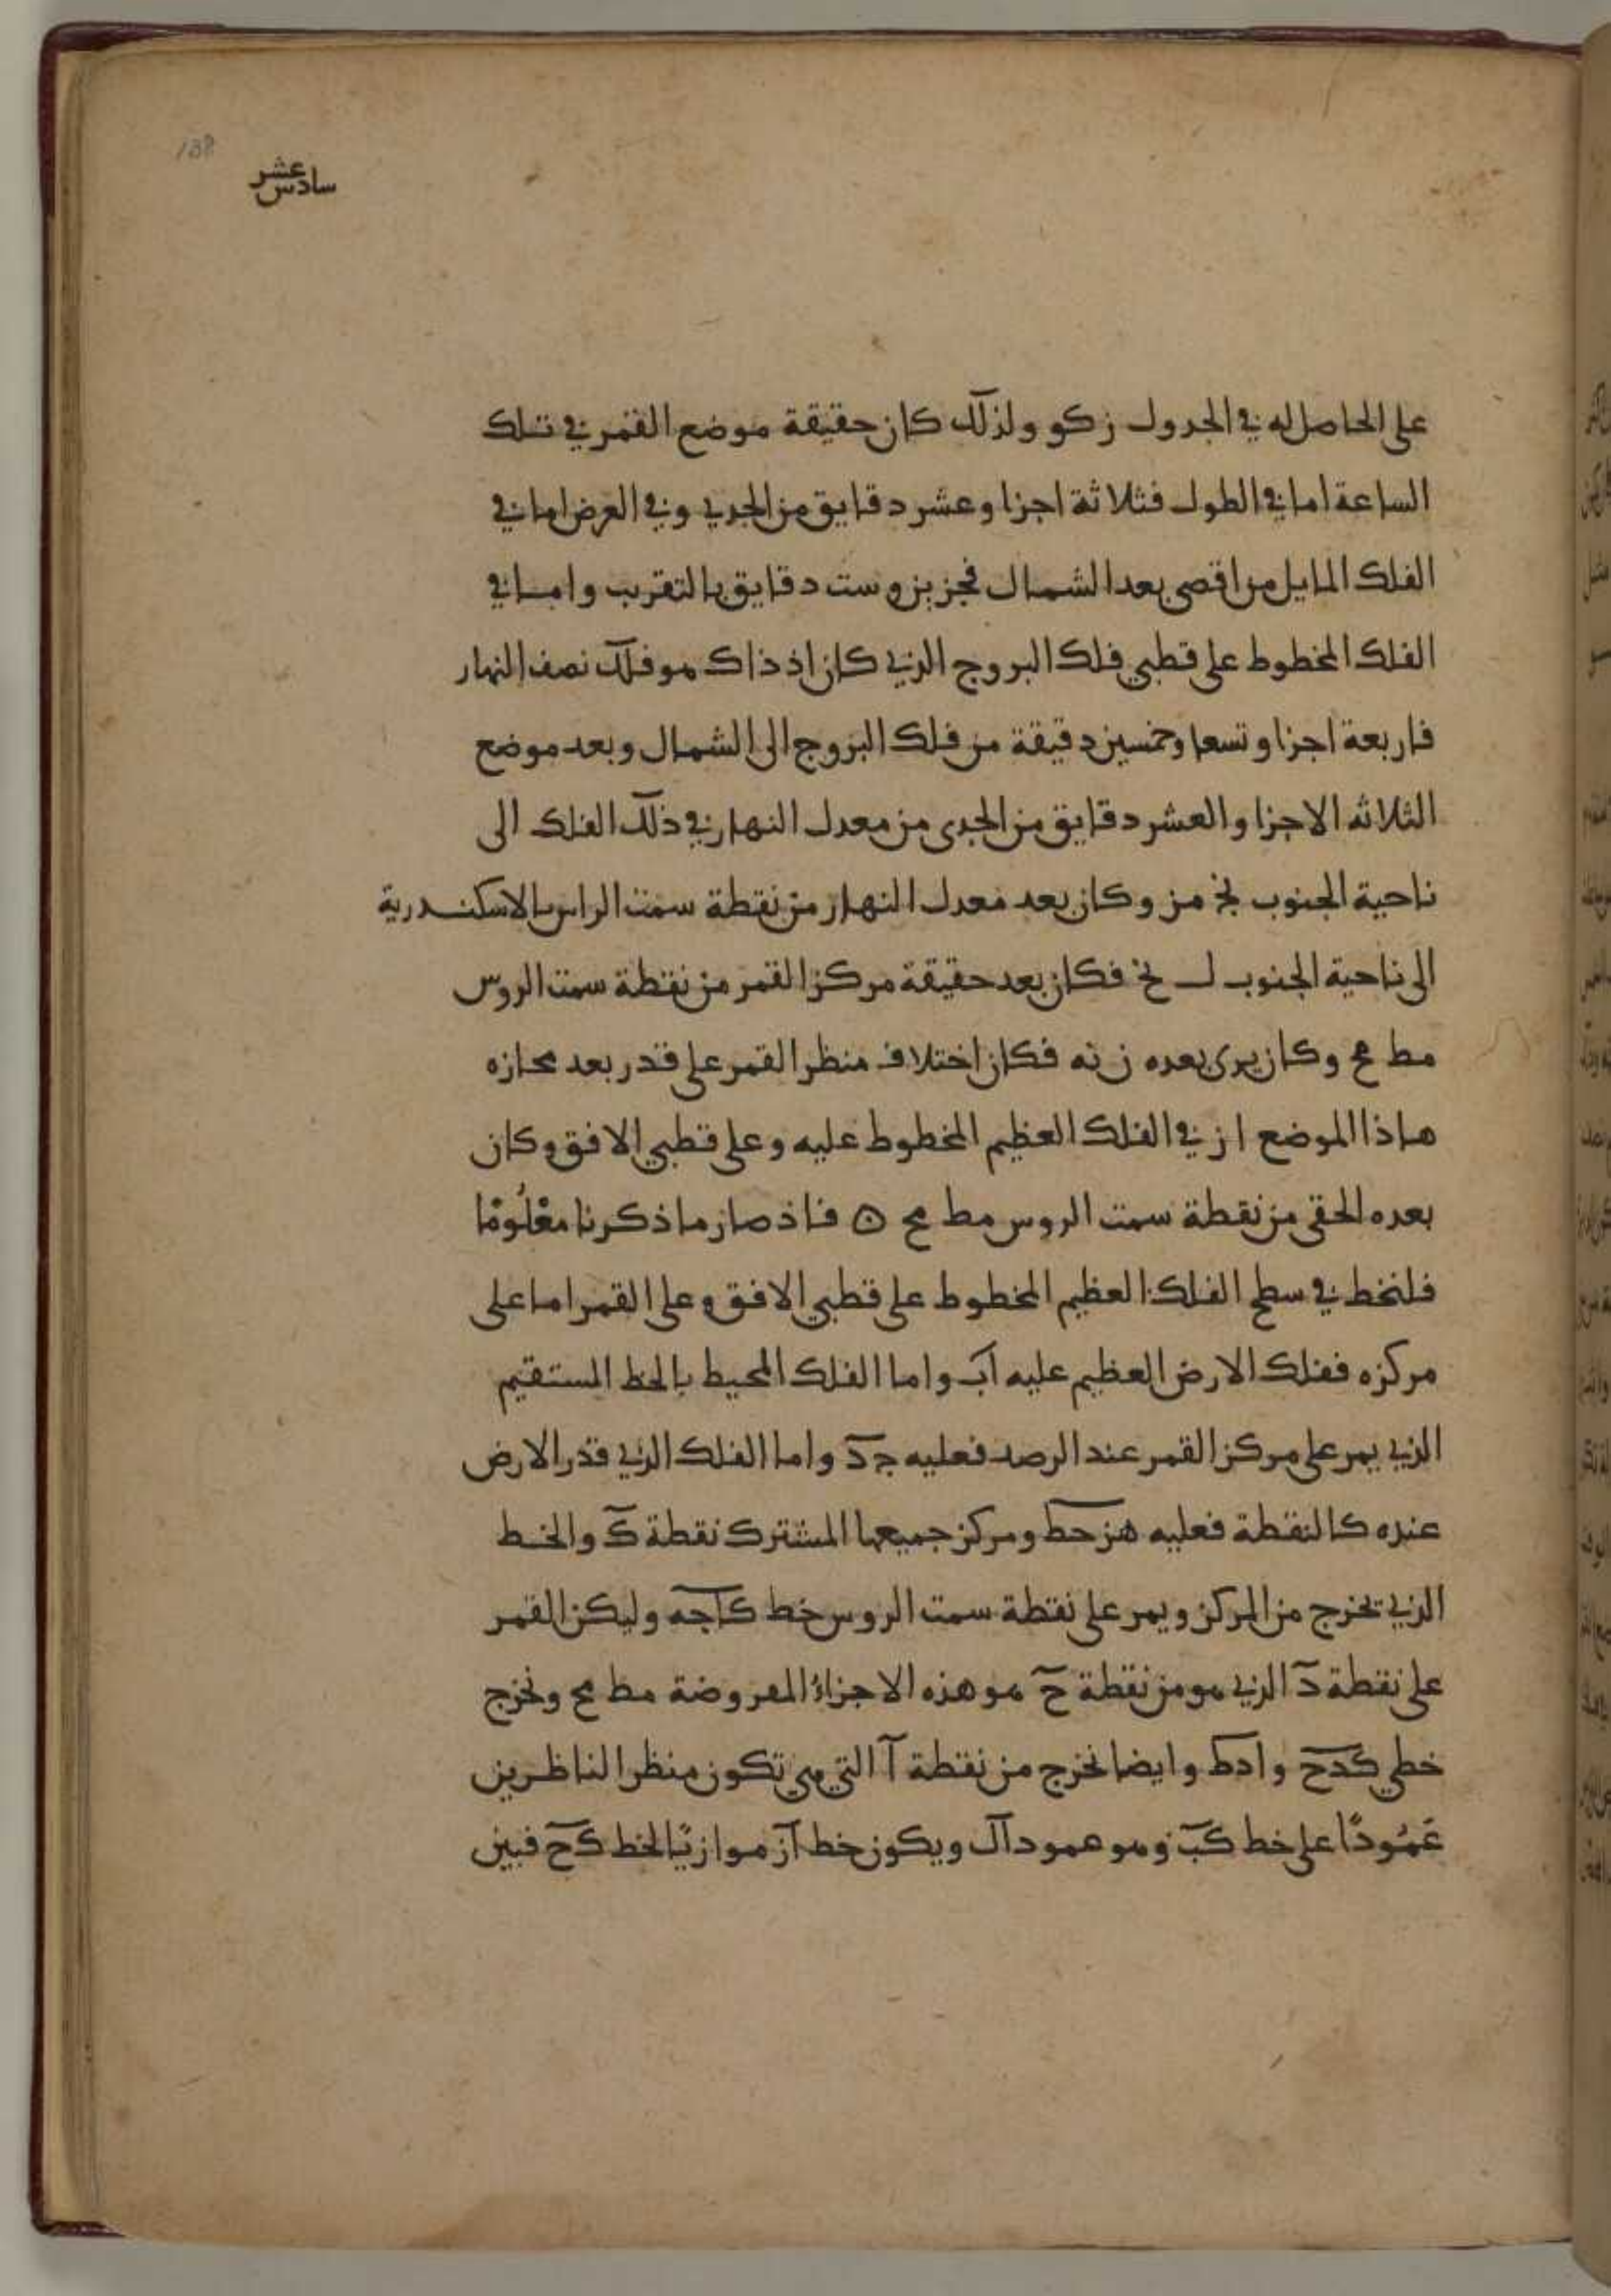 138
سادس عشر
على الحاصل له في الجدول ز كو ولذلك كان حقيقة موضع القمر في تلك
الساعة اما في الطول فثلاثة اجزا وعشر دقايق من الجدي وفي العرض اما في
الفلك المايل من اقصى بعد الشمال فجزين وست دقايق بالتقريب واما في
الفلك المخطوط على قطبي فلك البروج الذي كان اذ ذاك هو فلك نصف النهار
فاربعة اجزا وتسعا وخمسين دقيقة من فلك البروج الى الشمال وبعد موضع
الثلاثه الاجزا والعشر دقايق من الجدى من معدل النهار في ذلك الفلك الى
ناحية الجنوب كج مز وكان بعد معدل النهار من نقطة سمت الراس بالاسكندرية
الى ناحية الجنوب ل نح فكان بعد حقيقة مركز القمر من نقطة سمت الروس
مط مح وكان يرى بعده ن نه فكان اختلاف منظر القمر على قدر بعد مجازه
هاذا الموضع ا ز في الفلك العظيم المخطوط عليه وعلى قطبي الافق وكان
بعده الحقي من نقطة سمت الروس مط مح ۞ فاذ صار ما ذكرنا معْلُومًا
فلنخط في سطح الفلك العظيم المخطوط على قطبي الافق وعلى القمر اما على
مركزه ففلك الارض العظيم عليه اب واما الفلك المحيط بالخط المستقيم
الذي يمر على مركز القمر عند الرصد فعليه جد واما الفلك الذي قدر الارض
عنده كالنقطة فعليه هزحط ومركز جميعها المشترك نقطة ك والخط
الذي يخرج من المركز ويمر على نقطة سمت الروس خط كاجه وليكن القمر
على نقطة د الذي هو من نقطة ج هو هذه الاجزاء المعروضة مط مح ونخرج
خطي كدح وادط وايضا نخرج من نقطة ا التي هي تكون منظر الناظرين
عَمُودًا على خط كب وهو عمود ال ويكون خط از موازيًا لخط كح فبين